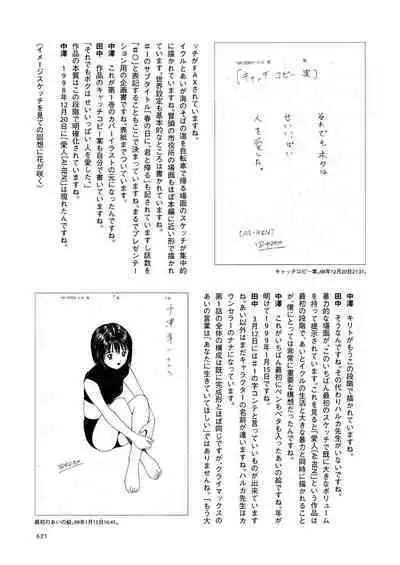 ッチがFAXされていますね。
イクルとあいが海のそばの道を自転車で帰る場面のスケッチが集中的
に描かれていますね。冒頭の市役所の場面もほぼ本編に近い形で描かれ
ています。世界設定も基本的なところは書かれていますね。
#1のサブタイトル「春の日に、君と帰る」も記されていますし話数を
「#〇」と表記することもここで決まっていますね。まるでプレゼンテー
ション用の企画書ですね。表紙までついています。
中澤 これが第1巻のカバーイラストの元になったんですね。
田中 作品のキャッチコピー案も自分で書いていますね。
「それでもボクは せいいっぱい 人を愛した。」
中澤 作品の本質はこの段階で明確化されていますね。
1998年12月20日に『愛人[AI-REN]』は現れたんですね。
(イメージスケッチを見ての回想に花が咲く)
[キャッチコピー案]
それでもボクは
せいいっぱい
人を愛した。
[AI-REN]
キャッチコピー案。98年12月20日21:31。
中澤 キリトがもうこの段階でいますね。
田中 そうなんですね。その代わりハルカ先生がいないですね。
暴力的な場面が、このいちばん最初のスケッチで既に大きなボリューム
を持って提示されています。これを見ると『愛人[AI-REN]』という作品は
最初の段階で、あいとイクルの生活と大きな暴力と同時に描かれること
が、僕にとっては非常に重要な構想だったんですね。
中澤 これがいちばん最初にペンもベタも入ったあいの絵ですね。年が
明けて1999年1月15日ですね。
田中 3月12日には#1の字コンテと言っていいものが出来ています
ね。あい以外はまだキャラクターの名前が違いますね。ハルカ先生はカ
ウンセラーのナナになっています。
第1話の全体の構成は既に完成形とほぼ同じですが、クライマックスの
あいの言葉は「あなたに生きていてほしい」ではありませんね。「もう大
最初のあいの絵。99年1月15日16:41。
621